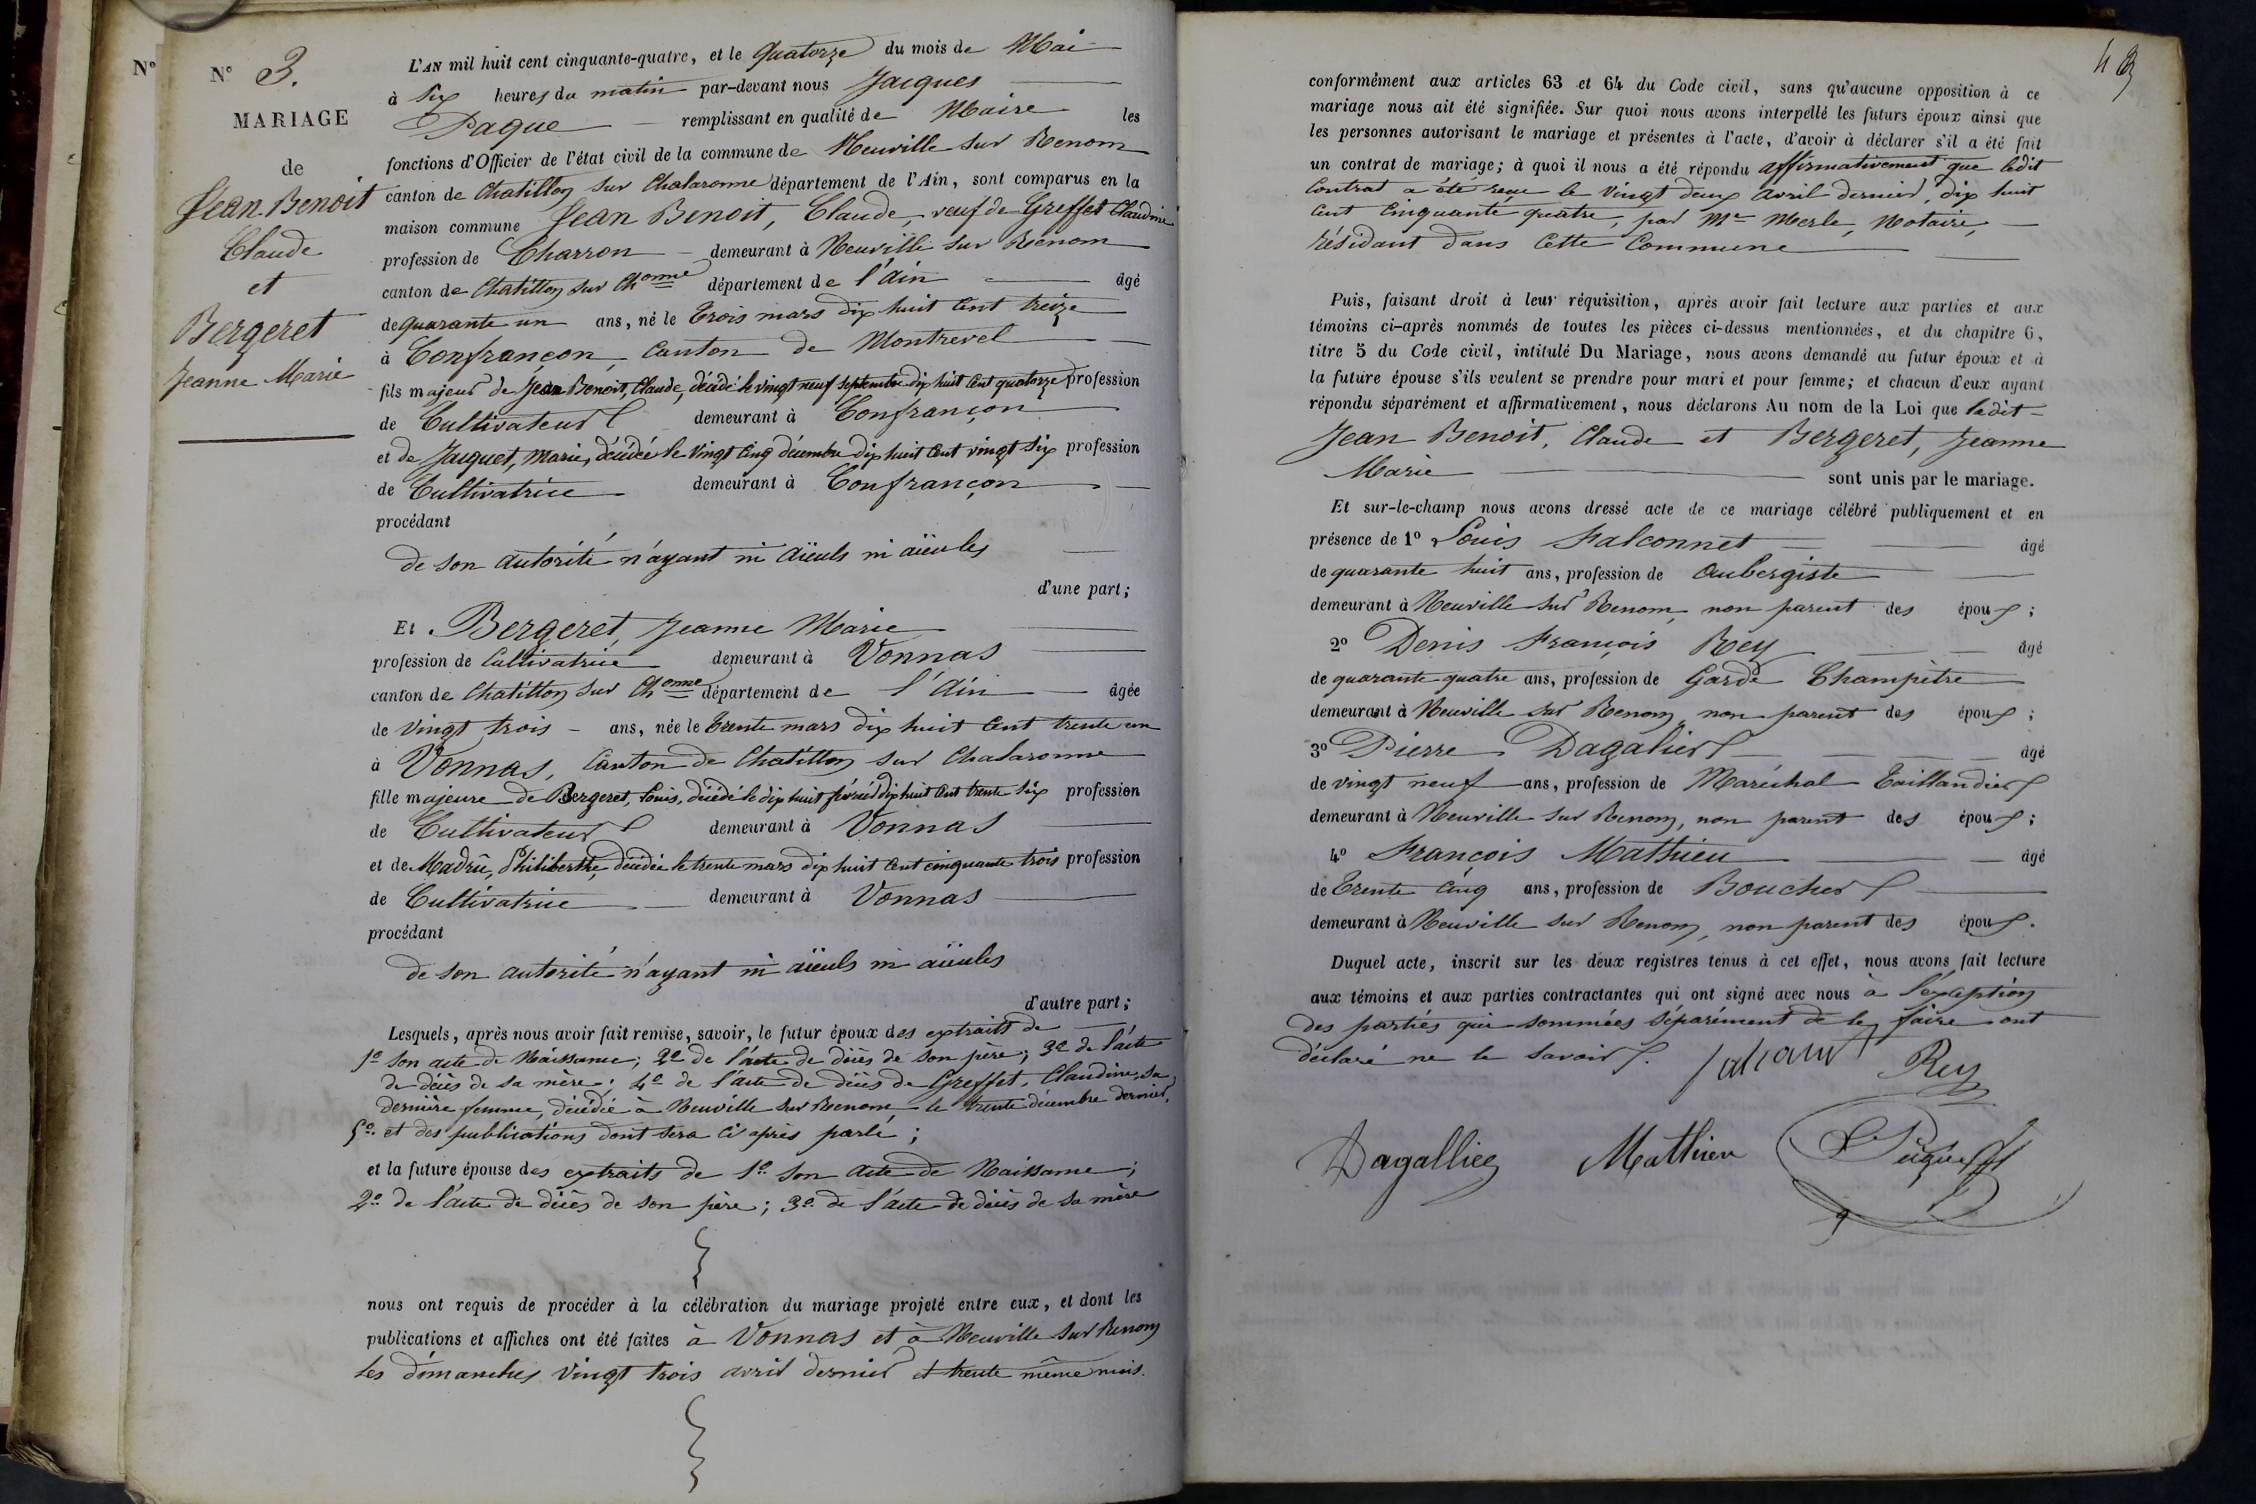 Nº
Nº 3.
MARIAGE
de
Jean-Benoit
Claude
et
Bergeret
Jeanne Marie
L'AN mil huit cent cinquante-quatre, et le Quatorze du mois de Mai
à Six heures du matin par-devant nous Jacques
Paque remplissant en qualité de Maire les
fonctions d'Officier de l'état civil de la commune de Neuville sur Renom
canton de Chatillon sur Chalaronne département de l'Ain, sont comparus en la
maison commune Jean Benoit, Claude, veuf de Greffet Claudine
profession de Charron demeurant à Neuville sur Renom
canton de Chatillon sur Chonne département de l'Ain âgé
de quarante un ans, né le Trois mars dix huit Cent treize
à Confrançon, Canton de Montrevel
fils majeur de Jean Benoit, Claude, décédé le vingt neuf septembre dix huit Cent quatorze profession
de Cultivateur demeurant à Confrançon
et de Jacquet, Marie, décédée le vingt Cinq décembre dix huit Cent vingt Six profession
de Cultivatrice demeurant à Confrançon
procédant
de son autorité n'ayant ni aïeuls ni aïeules
d'une part;
Et Bergeret, Jeanne Marie
profession de Cultivatrice demeurant à Vonnas
canton de Chatillon sur Chonne département de l'Ain âgée
de vingt trois ans, née le Trente mars dix huit Cent trente un
à Vonnas, Canton de Chatillon sur Chalaronne
fille majeure de Bergeret, Louis, décédé le dix huit février dix huit Cent trente Six profession
de Cultivateur demeurant à Vonnas
et de Philiberthe, décédée le trente mars dix huit Cent cinquante trois profession
de Cultivatrice demeurant à Vonnas
procédant
de son autorité n'ayant ni aïeuls ni aïeules
d'autre part;
Lesquels, après nous avoir fait remise, savoir, le futur époux des extraits de
1º son acte de Naissance; 2º de l'acte de décès de son père; 3º de l'acte
de décès de sa mère; 4º de l'acte de décès de Greffet, Claudine, sa
dernière femme, décédée à Neuville sur Renom, le trente décembre dernier,
5º et des publications dont sera ci après parlé;
et la future épouse des extraits de 1º son acte de Naissance;
2º de l'acte de décès de son père; 3º de l'acte de décès de sa mère
nous ont requis de procéder à la célébration du mariage projeté entre eux, et dont les
publications et affiches ont été faites à Vonnas et à Neuville sur Renom
les dimanches vingt trois avril dernier et trente même mois.
conformément aux articles 63 et 64 du Code civil, sans qu'aucune opposition à ce
mariage nous ait été signifiée. Sur quoi nous avons interpellé les futurs époux ainsi que
les personnes autorisant le mariage et présentes à l'acte, d'avoir à déclarer s'il a été fait
un contrat de mariage; à quoi il nous a été répondu affirmativement que ledit
Contrat a été reçu le vingt deux avril dernier, dix huit
Cent Cinquante quatre, par Me Merle, Notaire,
résidant dans Cette Commune
Puis, faisant droit à leur réquisition, après avoir fait lecture aux parties et aux
témoins ci-après nommés de toutes les pièces ci-dessus mentionnées, et du chapitre 6,
titre 5 du Code civil, intitulé Du Mariage, nous avons demandé au futur époux et à
la future épouse s'ils veulent se prendre pour mari et pour femme; et chacun d'eux ayant
répondu séparément et affirmativement, nous déclarons Au nom de la Loi que ledit
Jean Benoit, Claude et Bergeret, Jeanne
Marie sont unis par le mariage.
Et sur-le-champ nous avons dressé acte de ce mariage célébré publiquement et en
présence de 1º Louis Falconnet âgé
de quarante huit ans, profession de Aubergiste
demeurant à Neuville sur Renom, non parent des époux;
2º Denis François Rey âgé
de quarante quatre ans, profession de Garde Champêtre
demeurant à Neuville sur Renom, non parent des époux;
3º Pierre Dagalier âgé
de vingt neuf ans, profession de Maréchal Taillandier
demeurant à Neuville sur Renom, non parent des époux;
4º François Mathieu âgé
de Trente Cinq ans, profession de Boucher
demeurant à Neuville sur Renom, non parent des époux.
Duquel acte, inscrit sur les deux registres tenus à cet effet, nous avons fait lecture
aux témoins et aux parties contractantes qui ont signé avec nous à l'exception
des parties qui sommées séparément de le faire ont
déclaré ne le savoir. Rey
Dagallier Mathieu